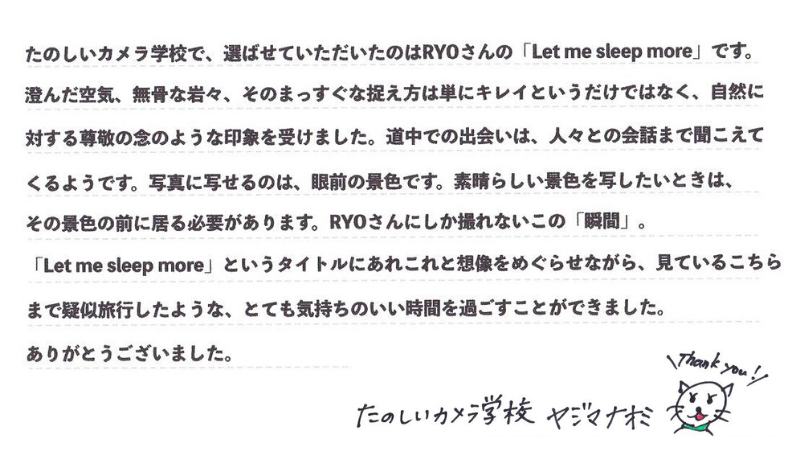 たのしいカメラ学校で、選ばせていただいたのはRYOさんの「Let me sleep more」です。
澄んだ空気、無骨な岩々、そのまっすぐな捉え方は単にキレイというだけではなく、自然に
対する尊敬の念のような印象を受けました。道中での出会いは、人々との会話まで聞こえて
くるようです。写真に写せるのは、眼前の景色です。素晴らしい景色を写したいときは、
その景色の前に居る必要があります。RYOさんにしか撮れないこの「瞬間」。
「Let me sleep more」というタイトルにあれこれと想像をめぐらせながら、見ているこちら
まで疑似旅行したような、とても気持ちのいい時間を過ごすことができました。
ありがとうございました。
\Thank you!/
たのしいカメラ学校 ヤジマナオミ